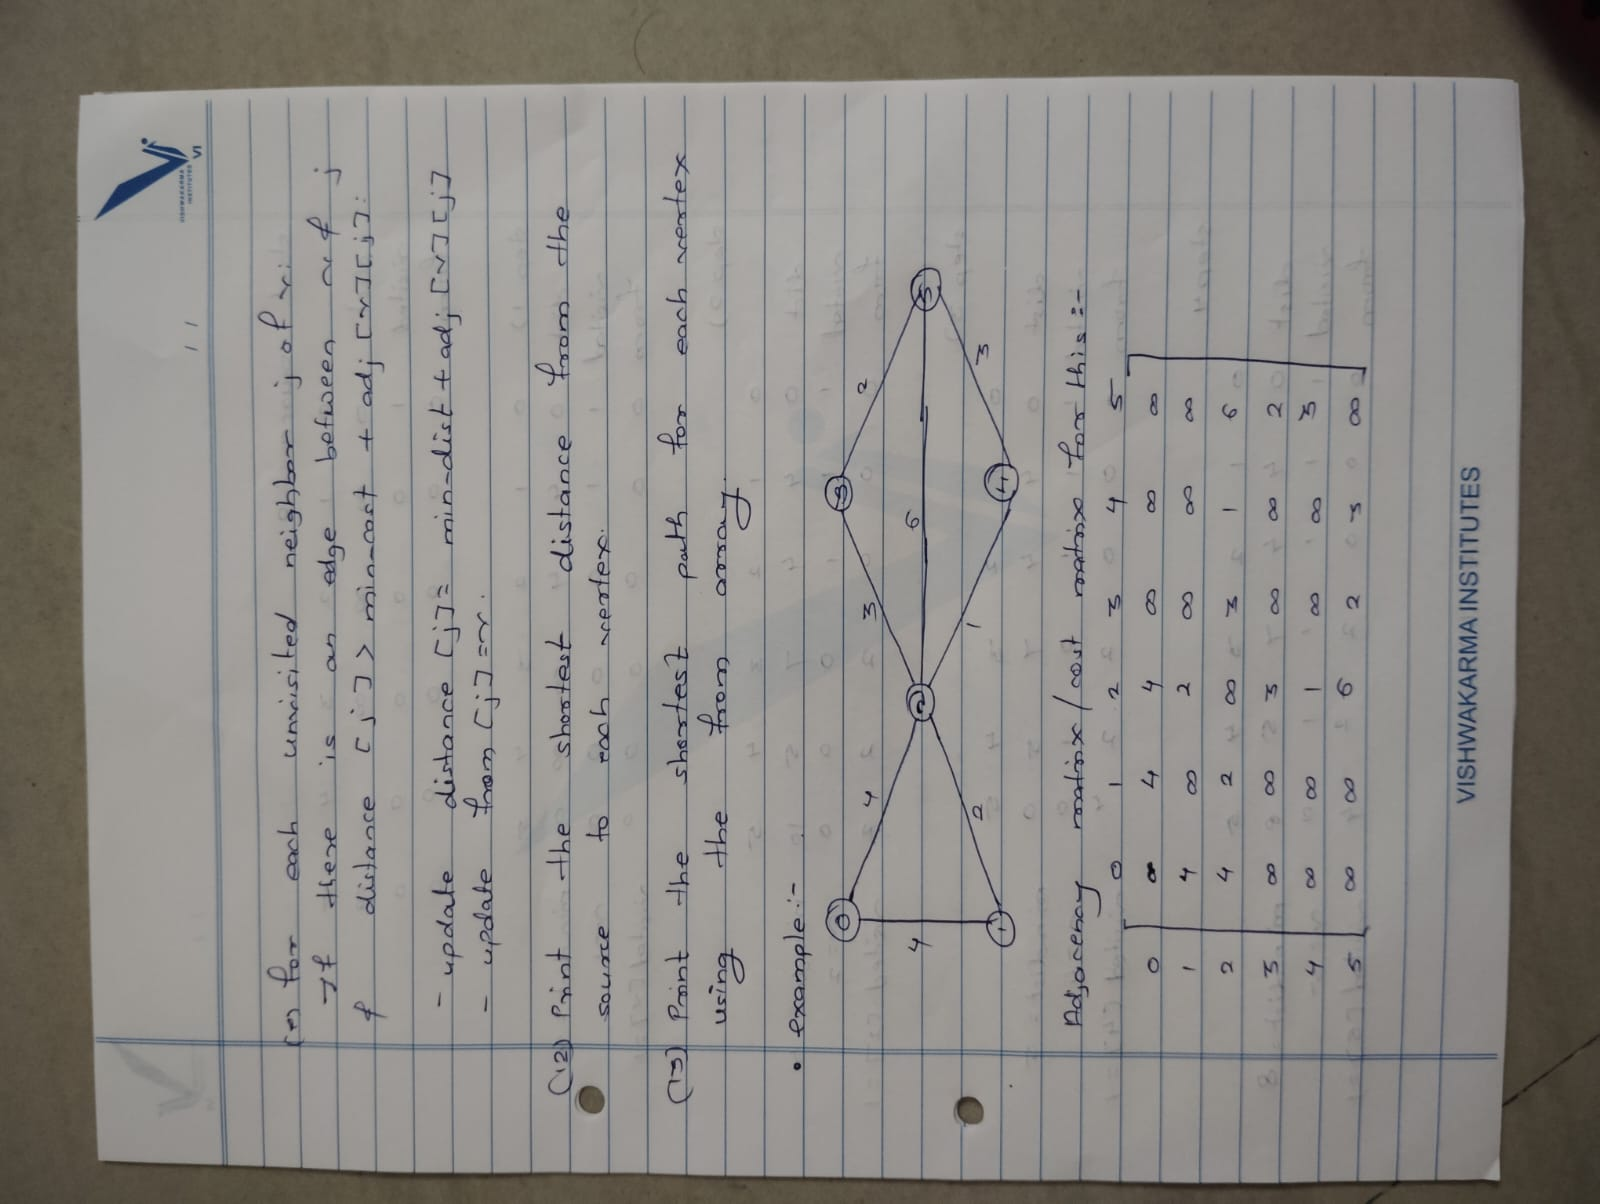 VISHWAKARMA
INSTITUTES
VI
(e) for each unvisited neighbor j of v:
If there is an edge between v & j
& distance [j] > min-cost + adj [v][j]:
- update distance [j] = min-dist + adj [v][j]
- update from [j] = v.
(12) Print the shortest distance from the
source to each vertex.
(13) Print the shortest path for each vertex
using the from array.
• example :-
0 4 3 3 2
4 2 6 5
1 2 1 4 3
Adjacency matrix / cost matrix for this :-
0 1 2 3 4 5
0 ∞ 4 4 ∞ ∞ ∞
1 4 ∞ 2 ∞ ∞ ∞
2 4 2 ∞ 3 1 6
3 ∞ ∞ 3 ∞ ∞ 2
4 ∞ ∞ 1 ∞ ∞ 3
5 ∞ ∞ 6 2 3 ∞
VISHWAKARMA INSTITUTES